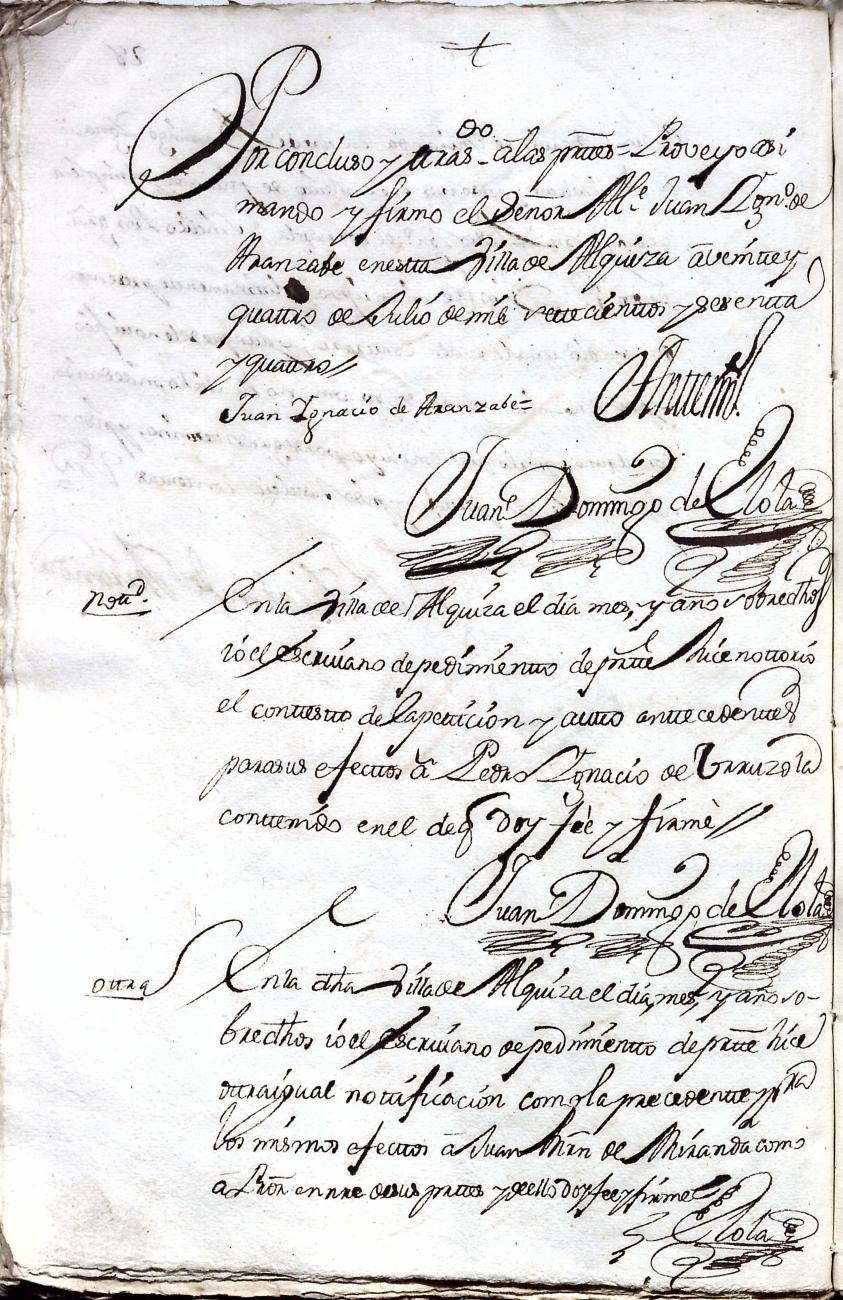 +
Por concluso y tras.do a las prttes = Proveyo asi
mando y firmo el Señor Al.e Juan Ygn.o de
Aranzabe en estta Villa de Alquiza a veintte y
quattro de Julio de mil settecienttos y sesentta
y quattro
Juan Ygnacio de Aranzabe =
Antte mi
Juan Domingo de Olola
Nott.
En la Villa de Alquiza el dia mes, y año sobredhos
io el Escrivano de pedimientto de prtte hice nottorio
el conttestto de la petticion y autto anttecedenttes
para sus efecttos a Pedro Ygnacio de Urruzola
conttenido en el de q doy feè y firmè
Juan Domingo de Olola
ottra
En la dha Villa de Alquiza el dia, mes, y año so-
bredhos io el Escrivano de pedimientto de prtte hice
ottra igual nottificacion como la precedentte y pra
los mismos efecttos a Juan Mrn de Miranda como
a Pror en nre de sus prttes y de ello doy fee y firme
Olola